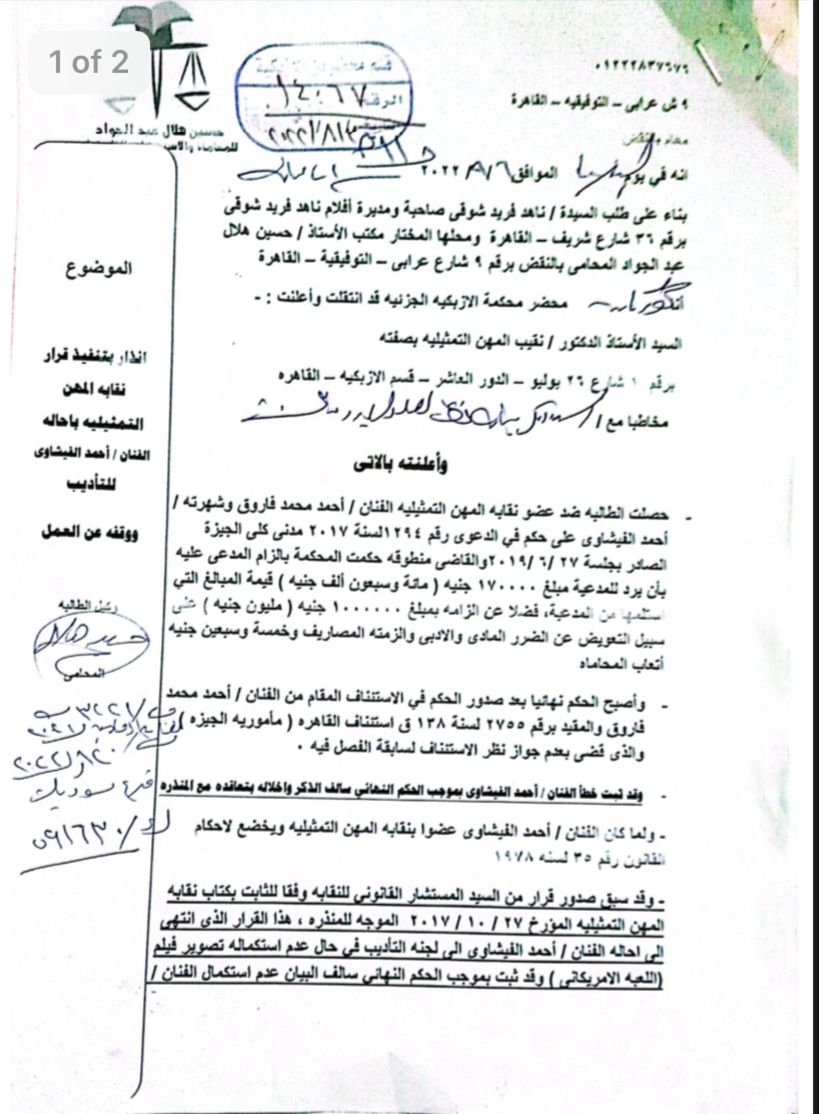 1 of 2
٠١٢٢٢٨٣٧٦٧٦
٩ ش عرابى – التوفيقيه – القاهرة
حسين هلال عبد الجواد
محام بالنقض
قسم
الرقم ١٤٠٦٧
انه في يوم الموافق ٢٠٢٢
بناء على طلب السيدة / ناهد فريد شوقى صاحبة ومديرة أفلام ناهد فريد شوقى
برقم ٣٦ شارع شريف – القاهرة ومحلها المختار مكتب الأستاذ / حسين هلال
عبد الجواد المحامى بالنقض برقم ٩ شارع عرابى – التوفيقية – القاهرة
محضر محكمة الازبكيه الجزئيه قد انتقلت وأعلنت : -
السيد الأستاذ الدكتور / نقيب المهن التمثيليه بصفته
برقم ١ شارع ٢٦ يوليو – الدور العاشر – قسم الازبكيه – القاهره
مخاطبا مع /
وأعلنته بالاتى
- حصلت الطالبه ضد عضو نقابه المهن التمثيليه الفنان / أحمد محمد فاروق وشهرته /
أحمد الفيشاوى على حكم في الدعوى رقم ١٢٩٤لسنة ٢٠١٧ مدنى كلى الجيزة
الصادر بجلسة ٢٧ /٦ /٢٠١٩والقاضى منطوقه حكمت المحكمة بالزام المدعى عليه
بأن يرد للمدعية مبلغ ١٧٠٠٠٠ جنيه ( مائة وسبعون ألف جنيه ) قيمة المبالغ التي
استلمها من المدعية، فضلا عن الزامه بمبلغ ١٠٠٠٠٠٠ جنيه ( مليون جنيه ) على
سبيل التعويض عن الضرر المادى والادبى والزمته المصاريف وخمسة وسبعين جنيه
أتعاب المحاماه
- وأصبح الحكم نهائيا بعد صدور الحكم في الاستئناف المقام من الفنان / أحمد محمد
فاروق والمقيد برقم ٢٧٥٥ لسنة ١٣٨ ق استئناف القاهره ( مأموريه الجيزه )
والذى قضى بعدم جواز نظر الاستئناف لسابقة الفصل فيه ٠
- وقد ثبت خطأ الفنان / أحمد الفيشاوى بموجب الحكم النهائي سالف الذكر واخلاله بتعاقده مع المنذره
- ولما كان الفنان / أحمد الفيشاوى عضوا بنقابه المهن التمثيليه ويخضع لاحكام
القانون رقم ٣٥ لسنه ١٩٧٨
- وقد سبق صدور قرار من السيد المستشار القانوني للنقابه وفقا للثابت بكتاب نقابه
المهن التمثيليه المؤرخ ٢٧ / ١٠ / ٢٠١٧ الموجه للمنذره ، هذا القرار الذى انتهى
الى احاله الفنان / أحمد الفيشاوى الى لجنه التأديب في حال عدم استكماله تصوير فيلم
(اللعبه الامريكانى ) وقد ثبت بموجب الحكم النهائي سالف البيان عدم استكمال الفنان /
الموضوع
انذار بتنفيذ قرار
نقابه المهن
التمثيليه باحاله
الفنان / أحمد الفيشاوى
للتأديب
ووقفه عن العمل
وكيل الطالبه
المحامى